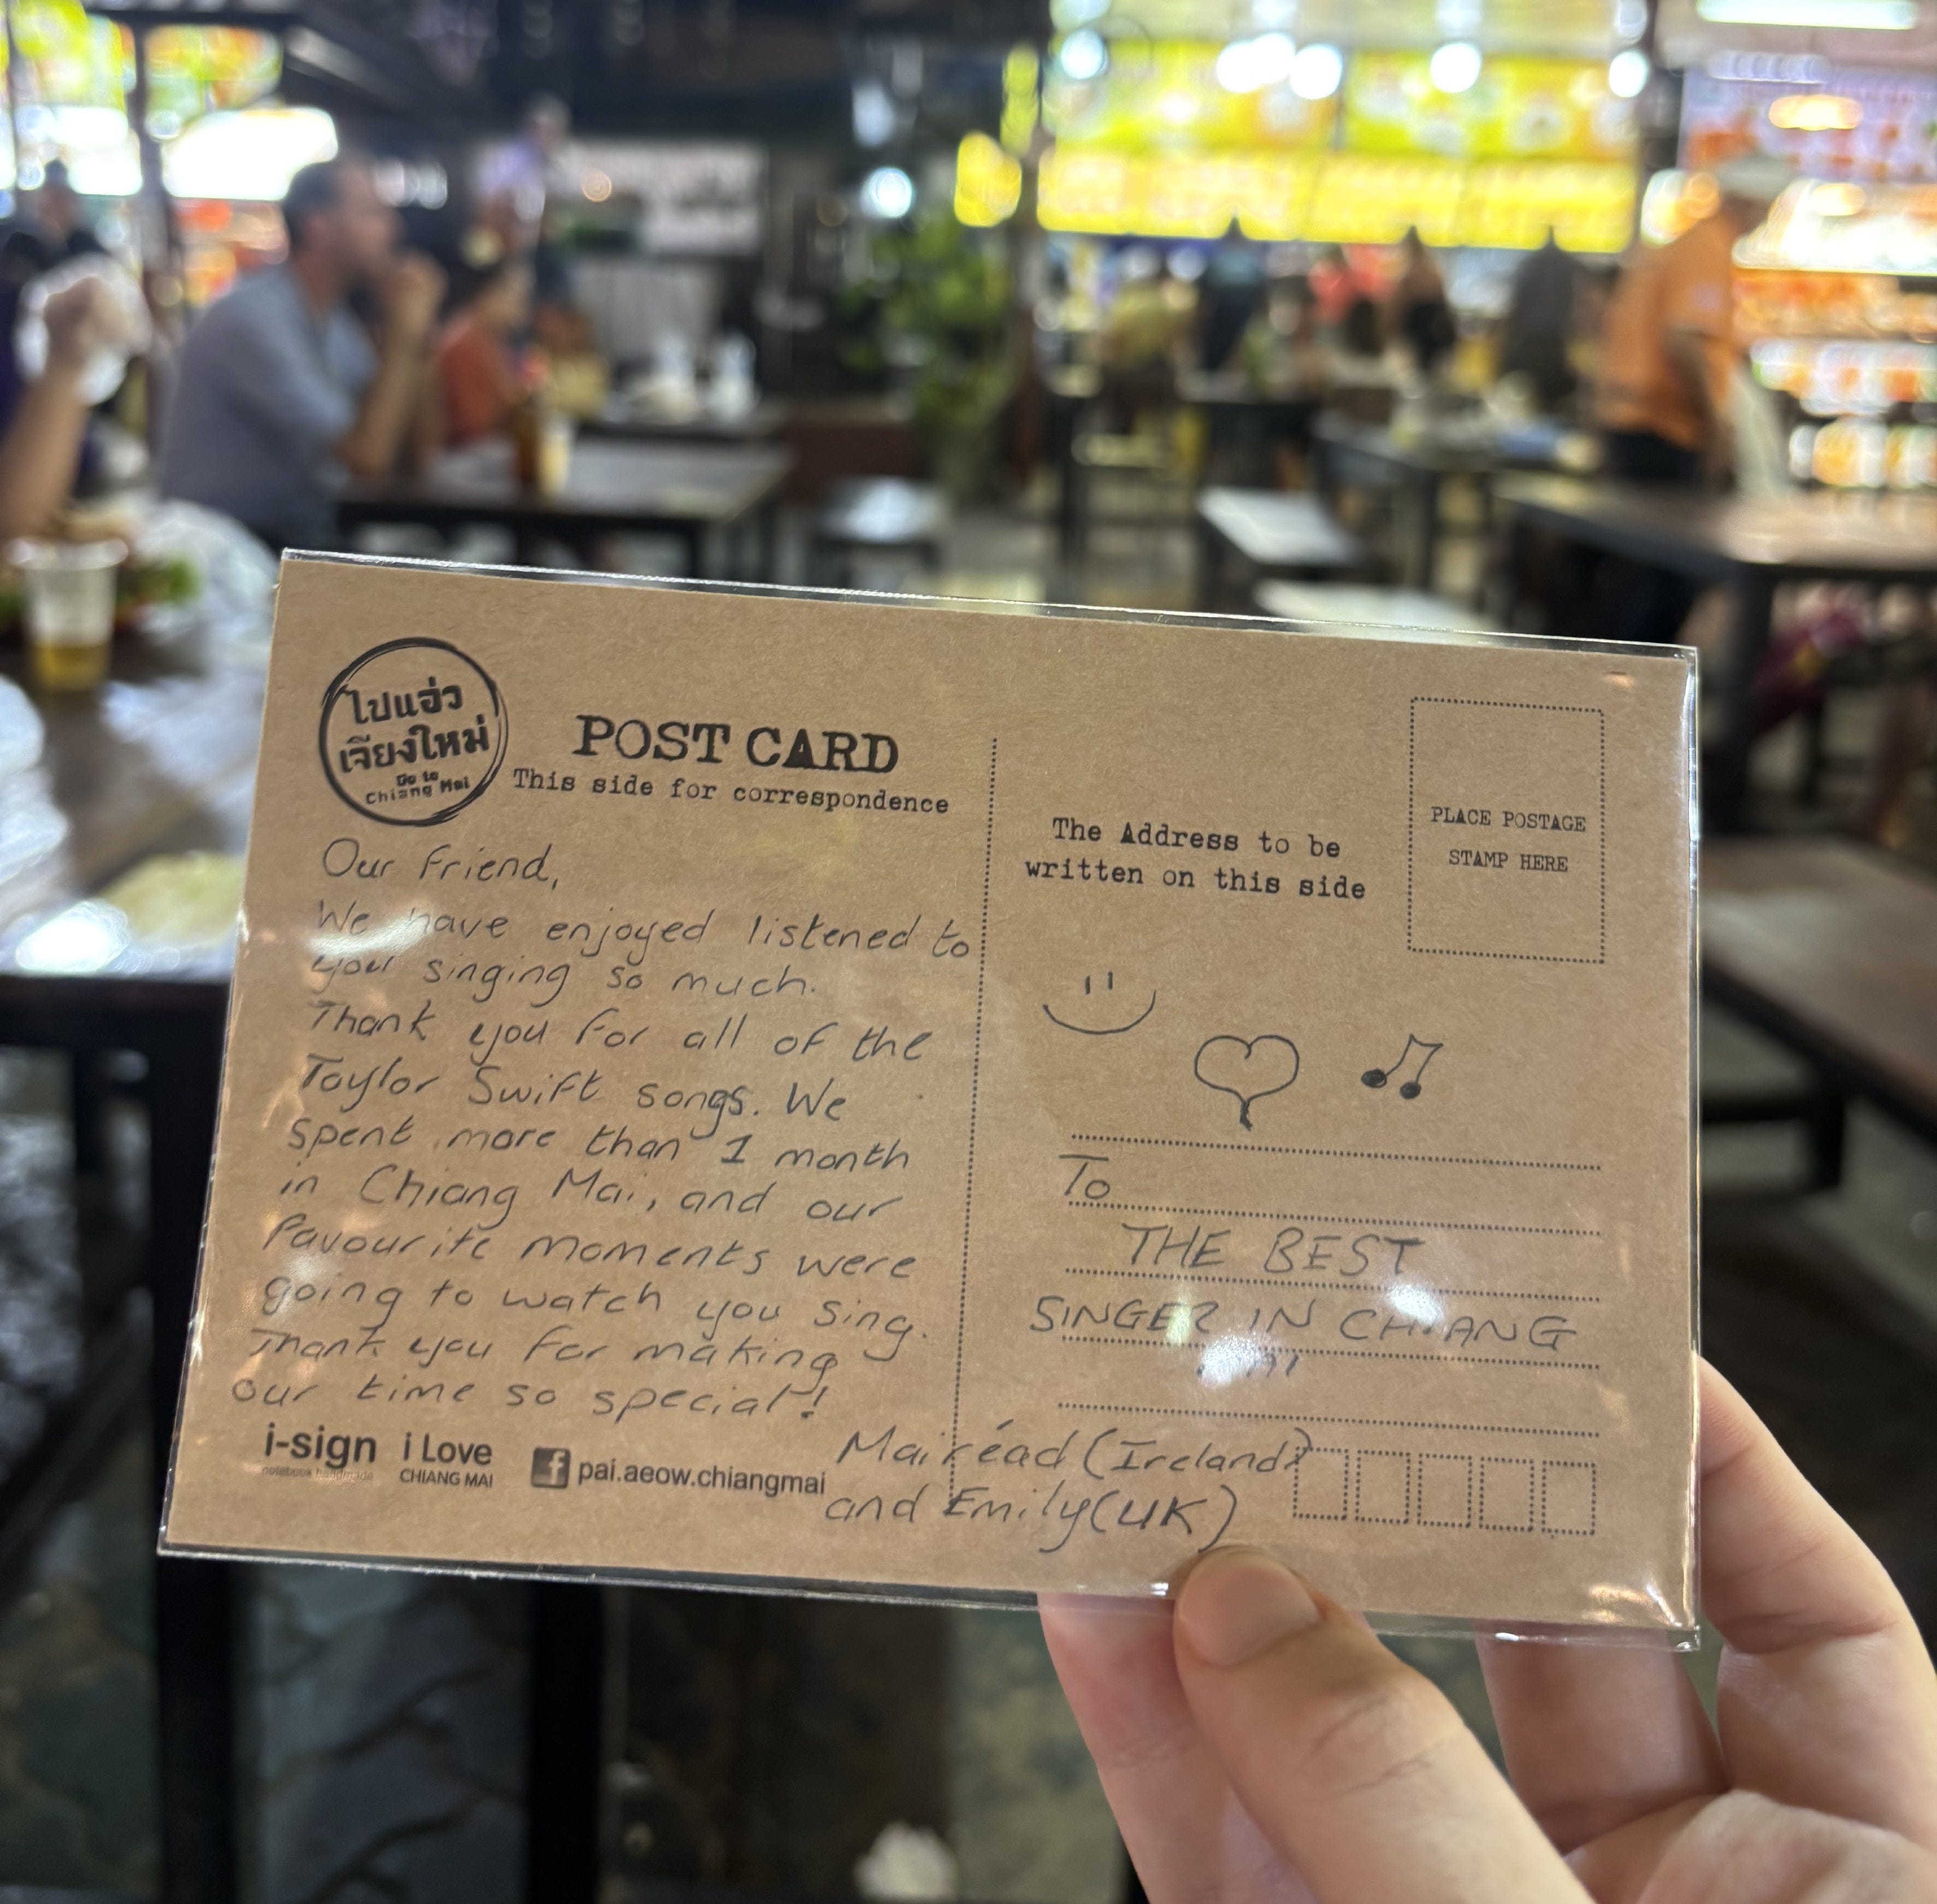 ไปแอ่ว
เจียงใหม่
Go to
Chiang Mai
POST CARD
This side for correspondence
Our friend,
We have enjoyed listened to
your singing so much.
Thank you for all of the
Taylor Swift songs. We
spent more than 1 month
in Chiang Mai, and our
favourite moments were
going to watch you sing.
Thank you for making
our time so special!
Mairéad (Ireland)
and Emily (UK)
i-sign
notebook handmade
i Love
CHIANG MAI
pai.aeow.chiangmai
The Address to be
written on this side
PLACE POSTAGE
STAMP HERE
To
THE BEST
SINGER IN CHIANG
MAI